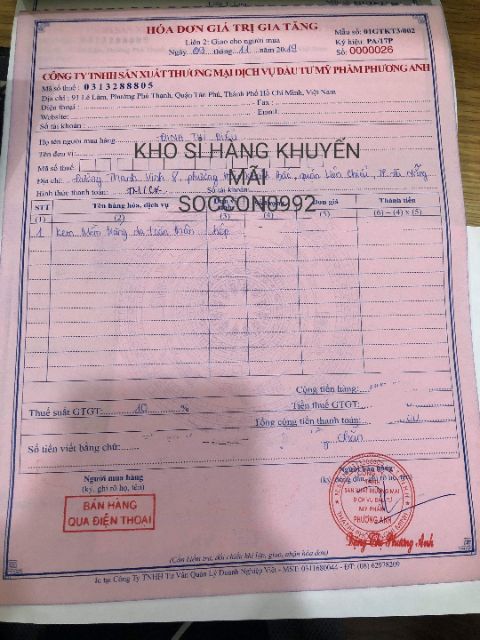 HÓA ĐƠN GIÁ TRỊ GIA TĂNG
Mẫu số: 01GTKT3/002
Liên 2: Giao cho người mua
Ký hiệu: PA/17P
Ngày 09 tháng 11 năm 2019
Số: 0000026
CÔNG TY TNHH SẢN XUẤT THƯƠNG MẠI DỊCH VỤ ĐẦU TƯ MỸ PHẨM PHƯƠNG ANH
Mã số thuế : 0313288805
Địa chỉ : 91 Lê Lâm, Phường Phú Thạnh, Quận Tân Phú, Thành Phố Hồ Chí Minh, Việt Nam
Điện thoại : Fax :
Website: Email:
Số tài khoản :
Họ tên người mua hàng
Tên đơn vị
KHO SỈ HÀNG KHUYẾN
Mã số thuế
MÃI
Địa chỉ: Đường Thanh Vinh 8, phường Bắc, quận Liên Chiểu, TP. Đà Nẵng
Hình thức thanh toán: Số tài khoản
SOCCON0992
STT Tên hàng hóa, dịch vụ Đơn giá Thành tiền
(1) (2) (3) (5) (6) = (4) x (5)
1 kem trắng da toàn thân hộp
Cộng tiền hàng:
Thuế suất GTGT: 10 % Tiền thuế GTGT:
Tổng cộng tiền thanh toán:
Số tiền viết bằng chữ: chẵn
Người mua hàng Người bán hàng
(ký, ghi rõ họ, tên) (ký, đóng dấu, ghi rõ họ, tên)
BÁN HÀNG
QUA ĐIỆN THOẠI
SẢN XUẤT THƯƠNG MẠI
DỊCH VỤ ĐẦU TƯ
MỸ PHẨM
PHƯƠNG ANH
Đặng Thị Phương Anh
(Cần kiểm tra, đối chiếu khi lập, giao, nhận hóa đơn)
In tại Công Ty TNHH Tư Vấn Quản Lý Doanh Nghiệp Việt - MST: 0311680044 - ĐT: (08) 62978209